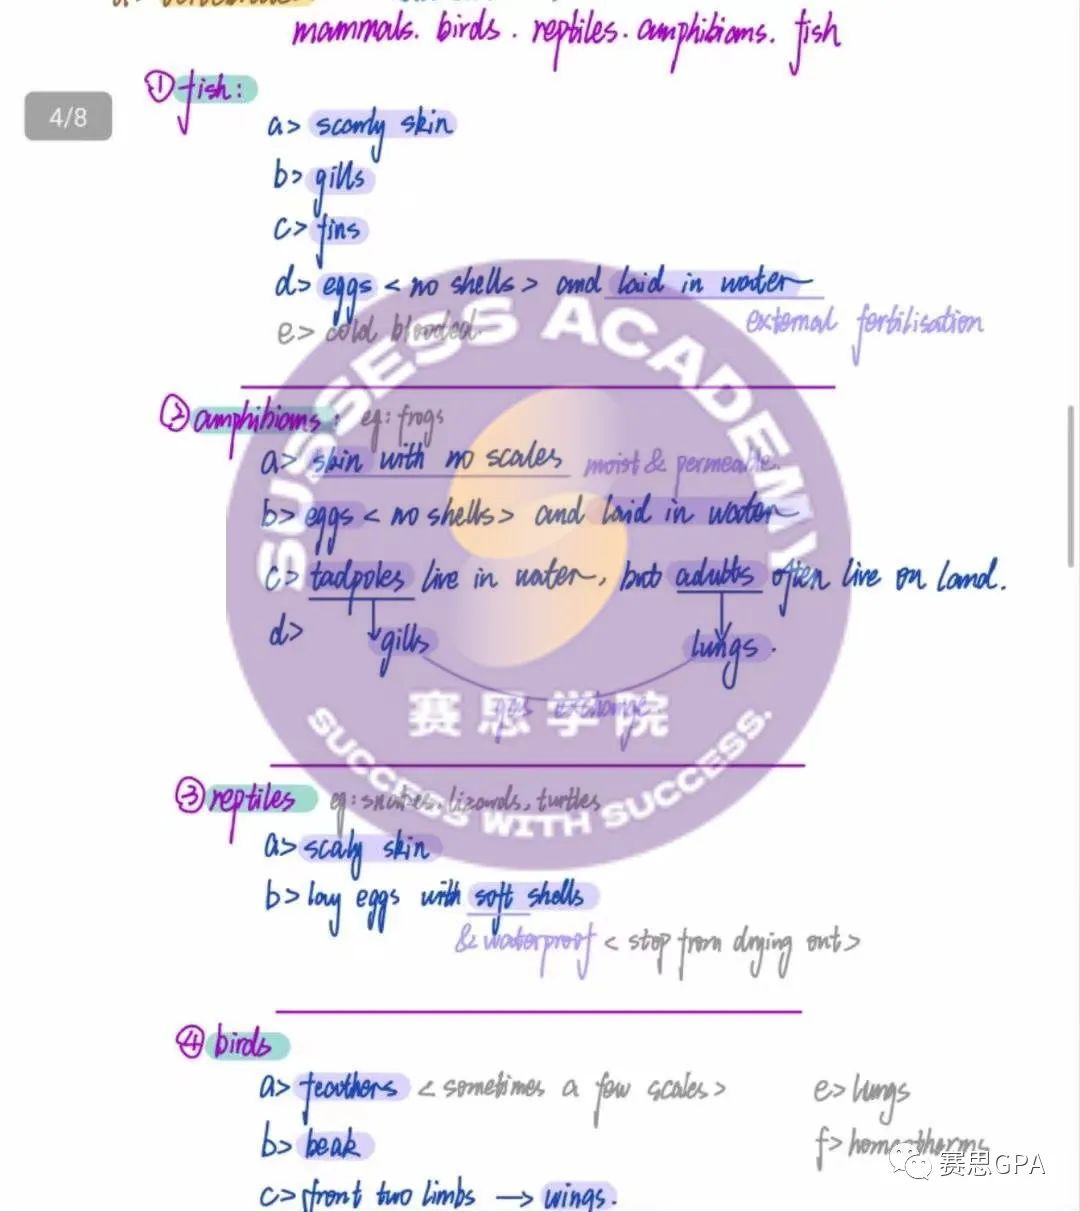 mammals. birds. reptiles. amphibians. fish
4/8
① fish:
a> scaly skin
b> gills
c> fins
d> eggs < no shells > and laid in water
external fertilisation
e> cold blooded.
② amphibians: eg: frogs
a> skin with no scales moist & permeable.
b> eggs < no shells > and laid in water
c> tadpoles live in water, but adults often live on land.
d> gills lungs.
gas exchange.
③ reptiles eg: snakes, lizards, turtles
a> scaly skin
b> lay eggs with soft shells
& waterproof < stop from drying out >
④ birds
a> feathers < sometimes a few scales > e> lungs
b> beak f> homeotherms
c> front two limbs → wings.
SUSSESS ACADEMY
赛思学院
SUCCESS WITH SUCCESS.
赛思GPA